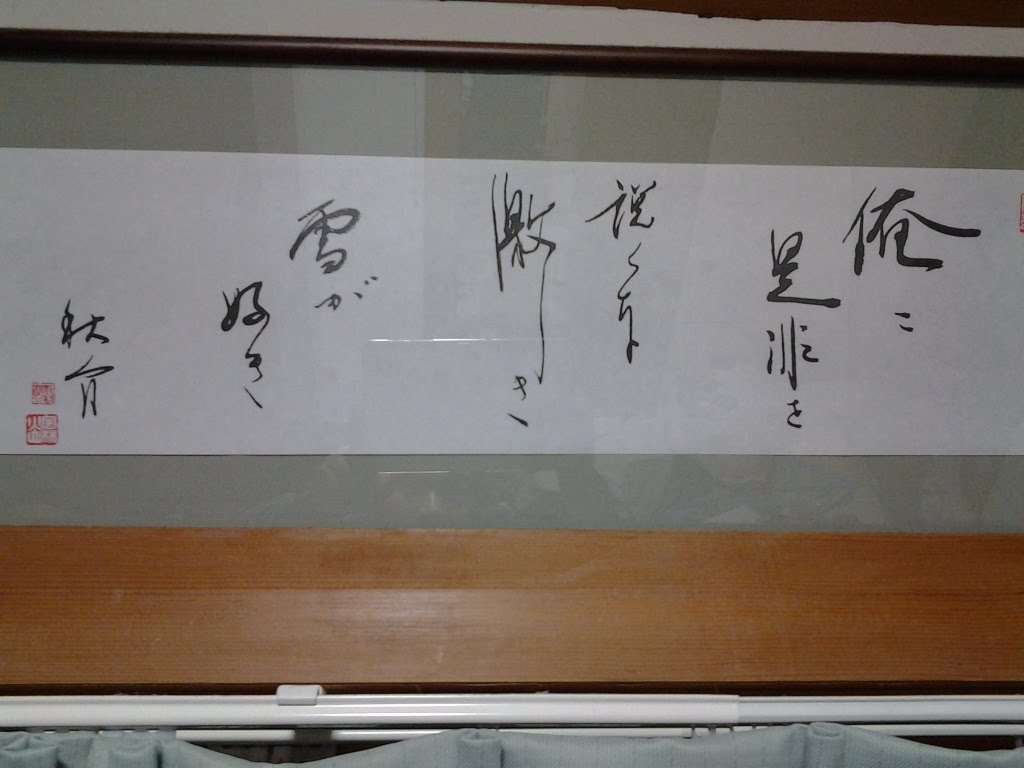 俺に
是非を
説くな
激しき
雪が
好き
秋介